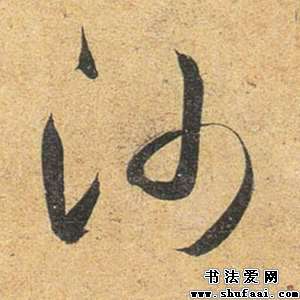 沙
书法爱网
www.shufaai.com